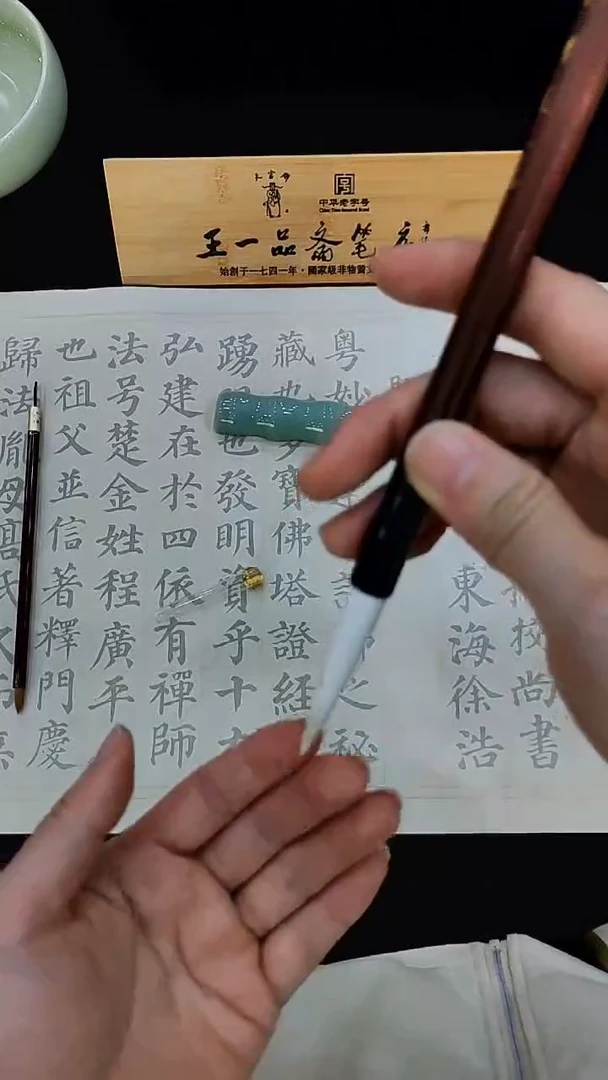 中华老字号
China Time-honored Brand
王一品斋笔庄
始創于一七四一年·國家級非物質文
校尚書
東海徐浩
粤妙之秘
藏也多寶佛塔證經
踴也發明資乎十
弘建在於四依有禪師
法号楚金姓程廣平
也祖父並信著釋門慶
歸法胤母高氏久